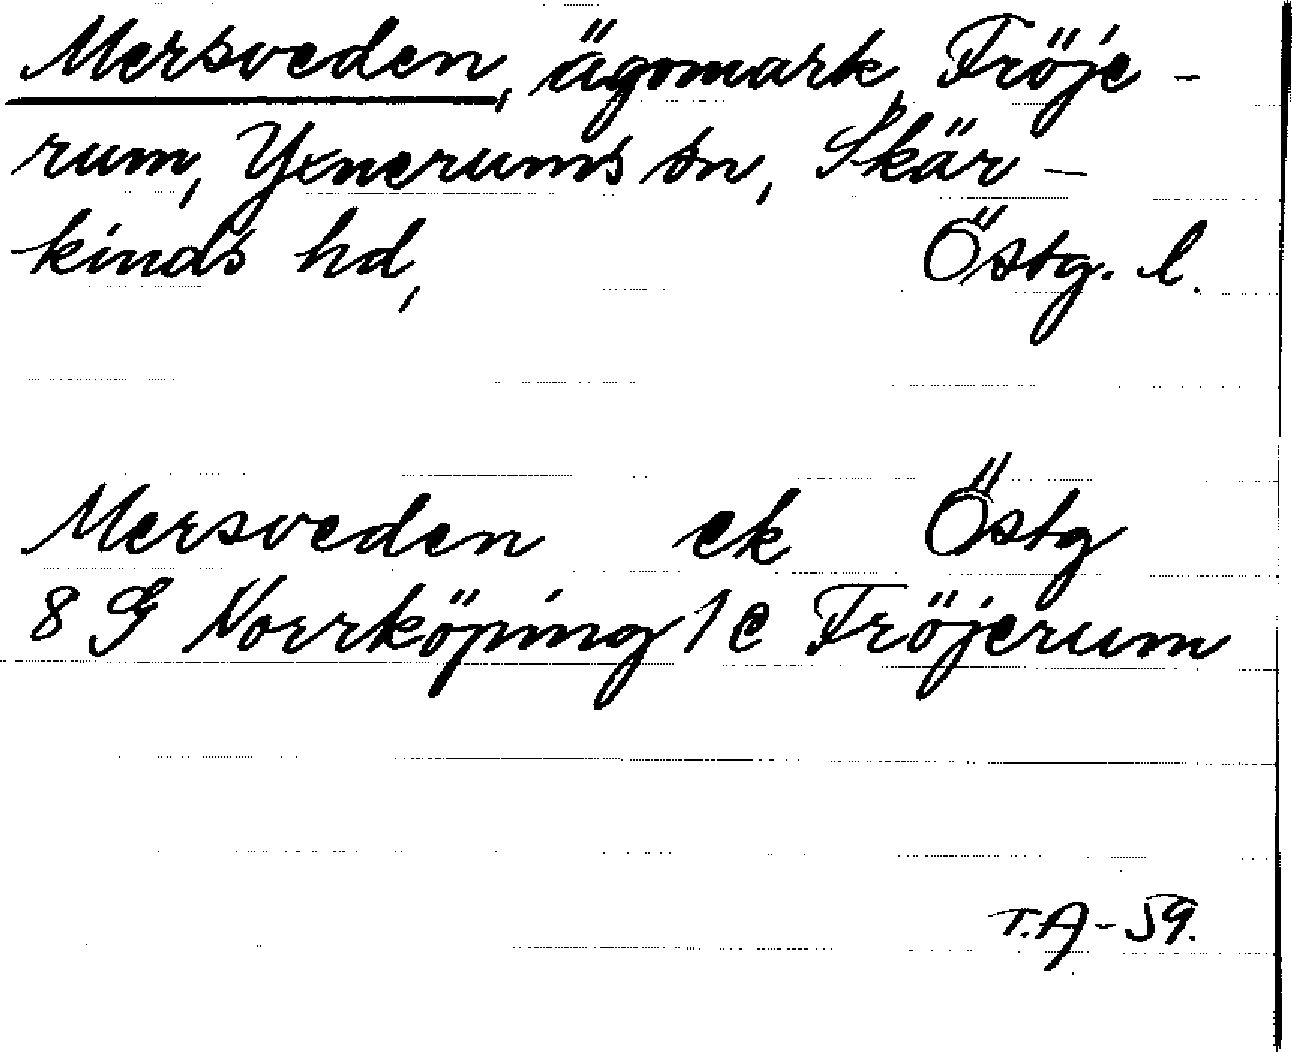 Mersveden, ägomark, Fröje-
rum, Yxnerums sn, Skär-
kinds hd, Östg. l.
Mersveden ek Östg
8 G Norrköping 1 c Fröjerum
T.A-59.